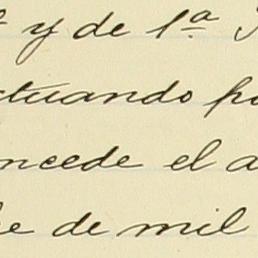 y de 1ª
ctuando po
ncede el a
de mil